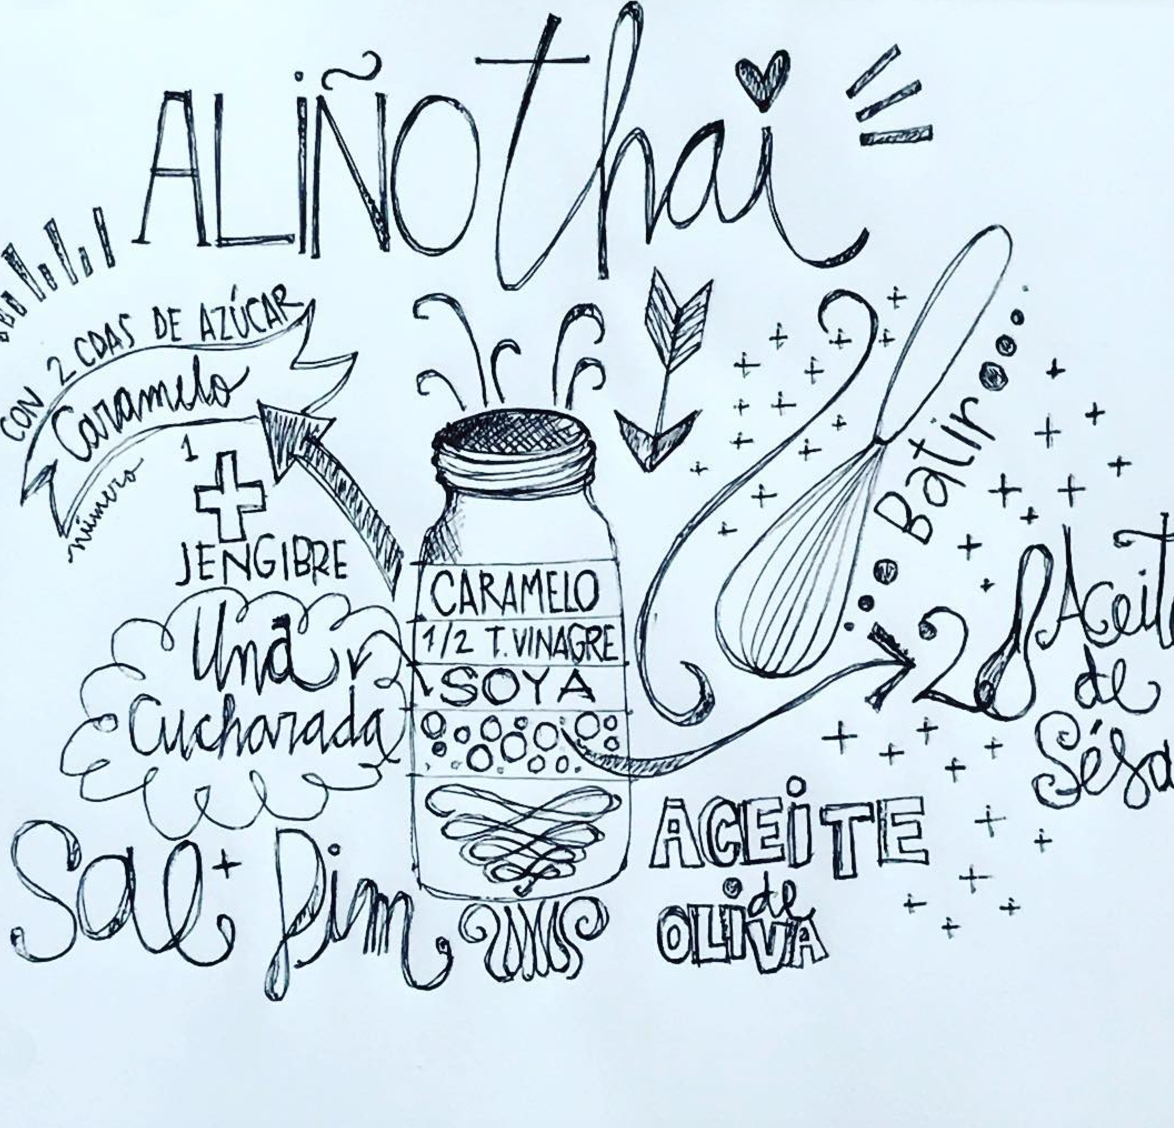 ALIÑO thai
CON 2 CDAS DE AZÚCAR
Caramelo
número 1
+
JENGIBRE
Una
Cucharada
CARAMELO
1/2 T. VINAGRE
SOYA
Batir
2
Aceit
de
Sésa
Sal + Pim
ACEITE
de
OLIVA